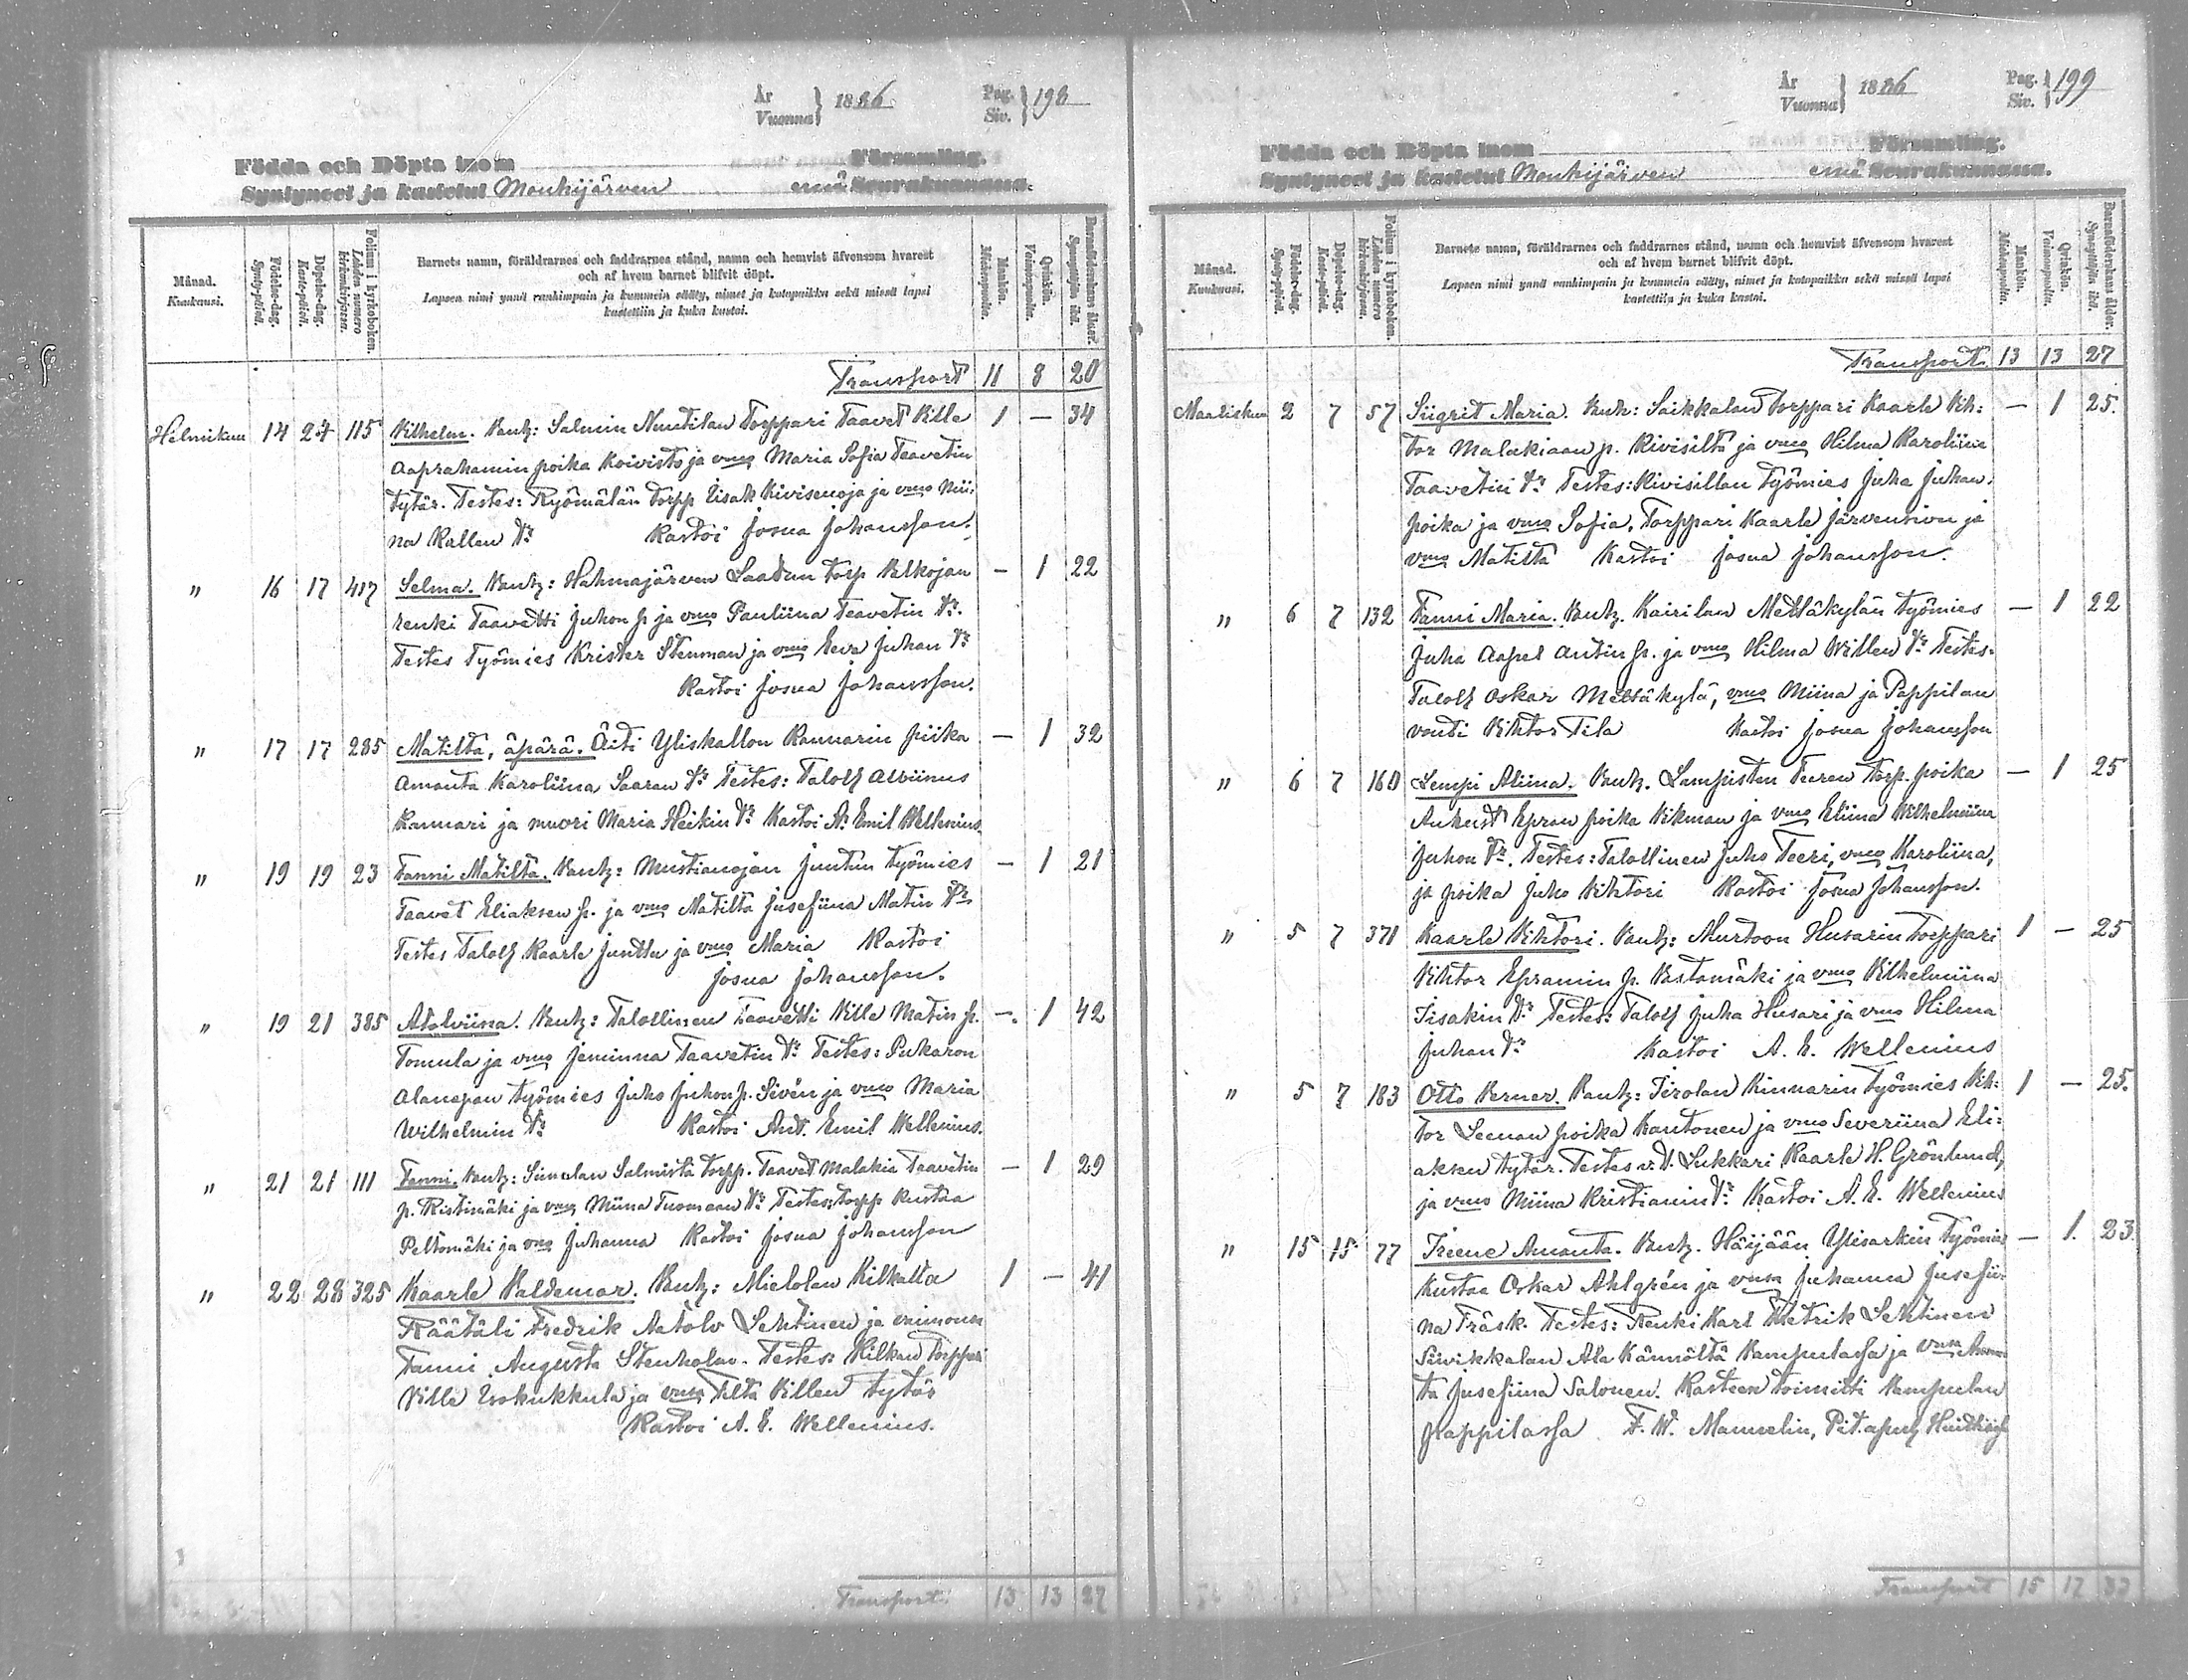 År
Vuonna } 1886
Pag.
Siv. } 198
Födda och Döpta inom Församling.
Syntyneet ja kastetut Mouhijärven emä Seurakunnassa.
Månad.
Kuukausi.
Födelse-dag.
Synty-päivä.
Döpelse-dag.
Kaste-päivä.
Folium i kyrkoboken.
Lehden numero kirkonkirjassa.
Barnets namn, föräldrarnes och faddrarnes stånd, namn och hemvist äfvensom hvarest
och af hvem barnet blifvit döpt.
Lapsen nimi ynnä vanhimpain ja kummein sääty, nimet ja kotopaikka sekä missä lapsi
kastettiin ja kuka kastoi.
Mankön.
Miehenpuolia.
Qvinkön.
Vaimonpuolia.
Barnaföderskans ålder.
Synnyttäjän ikä.
Transport 11 8 20
Helmikuu 14 24 115 Vilhelm. Vanh: Salmin Nuutilan Torppari Taavet Ville 1 — 34
Aaprahamin poika Koivisto ja vmo Maria Sofia Taavetin
tytär. Testes: Ryömälän torpp Iisak Kivisenoja ja vmo Mii:
na Kallen tr Kastoi Josua Johansson.
" 16 17 417 Selma. Vanh: Hahmajärven Laadun torp Valkojan — 1 22
renki Taavetti Juhon p ja vmo Pauliina Taavetin tr.
Testes Työmies Krister Stenman ja vmo Eeva Juhan tr
Kastoi Josua Johansson.
" 17 17 285 Matilta, äpärä. Äiti Yliskallon Rannarin piika — 1 32
Amanta Karoliina Saaran tr Testes: Taloll Alviinus
Kannari ja muori Maria Heikin tr Kastoi A. Emil Wellenius.
" 19 19 23 Fanni Matilta. Vanh: Mustianojan Juntin työmies — 1 21
Taavet Eliaksen p. ja vmo Matilta Jusefiina Matin tr
Testes Taloll Kaarle Junttu ja vmo Maria Kastoi
Josua Johansson.
" 19 21 385 Atalviina. Vanh: Talollinen Taavetti Ville Matin p. — 1 42
Tomula ja vmo Jemiina Taavetin tr Testes: Pukaron
Alanepan työmies Juho Juhon p. Sivén ja vmo Maria
Wilhelmin tr Kastoi Ant. Emil Wellenius.
" 21 21 111 Fanni. Vanh: Simulan Salmistä torpp. Taavet Malakia Taavetin — 1 29
p. Ristimäki ja vmo Miina Tuomaan tr Testes: torpp Kustaa
Peltomäki ja vmo Juhanna Kastoi Josua Johansson
" 22 28 325 Kaarle Valdemar. Vanh: Mielolan Kilkalta 1 — 41
Räätäli Fredrik Aatolv Lehtinen ja vaimonsa
Fanni Augusta Stenholm. Testes: Kilkan Torppari
Ville Isokukkula ja vmo Tilta Villen tytär
Kastoi A. E. Wellenius.
Transport 13 13 27
År
Vuonna } 1886
Pag.
Siv. } 199
Födda och Döpta inom Församling.
Syntyneet ja kastetut Mouhijärven emä Seurakunnassa.
Månad.
Kuukausi.
Födelse-dag.
Synty-päivä.
Döpelse-dag.
Kaste-päivä.
Folium i kyrkoboken.
Lehden numero kirkonkirjassa.
Barnets namn, föräldrarnes och faddrarnes stånd, namn och hemvist äfvensom hvarest
och af hvem barnet blifvit döpt.
Lapsen nimi ynnä vanhimpain ja kummein sääty, nimet ja kotopaikka sekä missä lapsi
kastettiin ja kuka kastoi.
Mankön.
Miehenpuolia.
Qvinkön.
Vaimonpuolia.
Barnaföderskans ålder.
Synnyttäjän ikä.
Transport 13 13 27
Maaliskuu 2 7 57 Siigrit Maria. Vanh: Saikkalan Torppari Kaarle Vih: — 1 25.
tor Malakiaan p. Kivisiltä ja vmo Hilma Karoliina
Taavetin tr Testes: Kivisillan Työmies Juha Juhan.
poika ja vmo Sofia. Torppari Kaarle Järvensivu ja
vmo Matilta Kastoi Josua Johansson.
" 6 7 132 Fanni Maria. Vanh. Kairilan Metsäkylän työmies — 1 22
Juha Aapel Antin p. ja vmo Hilma Willen tr Testes.
Taloll Oskar Metsäkylä, vmo Miina ja Pappilan
vouti Vihtor Tila Kastoi Josua Johansson
" 6 7 160 Lempi Aliina. Vanh. Lampisten Teeren torp. poika — 1 25
Aukust Epran poika Vikman ja vmo Eliina Vilhelmiina
Juhon tr. Testes: Talollinen Juho Teeri, vmo Karoliina,
ja poika Juho Vihtori Kastoi Josua Johansson.
" 5 7 371 Kaarle Vihtori. Vanh: Murtoon Husarin torppari 1 — 25
Vihtor Epramin p. Vastamäki ja vmo Vilhelmiina
Iisakin tr Testes: Taloll Juha Husari ja vmo Hilma
Juhan tr Kastoi A. E. Wellenius
" 5 7 183 Otto Verner. Vanh: Tirolan Kinnarin Työmies Vih: 1 — 25.
tor Leenan poika Kantonen ja vmo Severiina Eli:
aksen tytär. Testes v. t. Lukkari Kaarle H. Grönlund,
ja vmo Miina Kristianin tr. Kastoi A. E. Wellenius
" 15 15 77 Ireene Amanta. Vanh. Häijään Ylisarkin Työmies — 1. 23.
Kustaa Oskar Ahlgrén ja vmsa Juhanna Josefii:
na Träsk. Testes: Renki Karl Vietrik Lehtinen
Siivikkalan Ala Kännöltä Vampulassa ja vmsa Aman
ta Jusefiina Salonen. Kasteen toimitti Vampulan
Pappilassa F. W. Mannelin, Pit.apul.
Transport 15 17 32